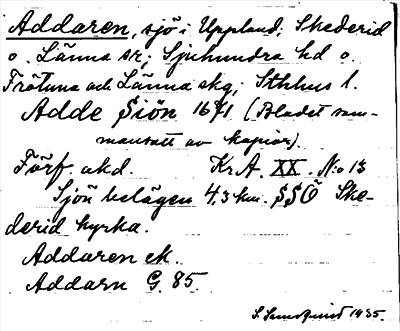 Addaren, sjö i Uppland; Skederid
o. Länna sr; Sjuhundra hd o.
Frötuna och Länna skg; Sthlms l.
Adde Siön 1671 (Bladet sam-
mansatt av kopior).
Förf. okd. Kr.A. XX. N:o 13
Sjön belägen 4.3 km. SSÖ Ske-
derid kyrka.
Addaren ek.
Addarn G. 85.
1935.